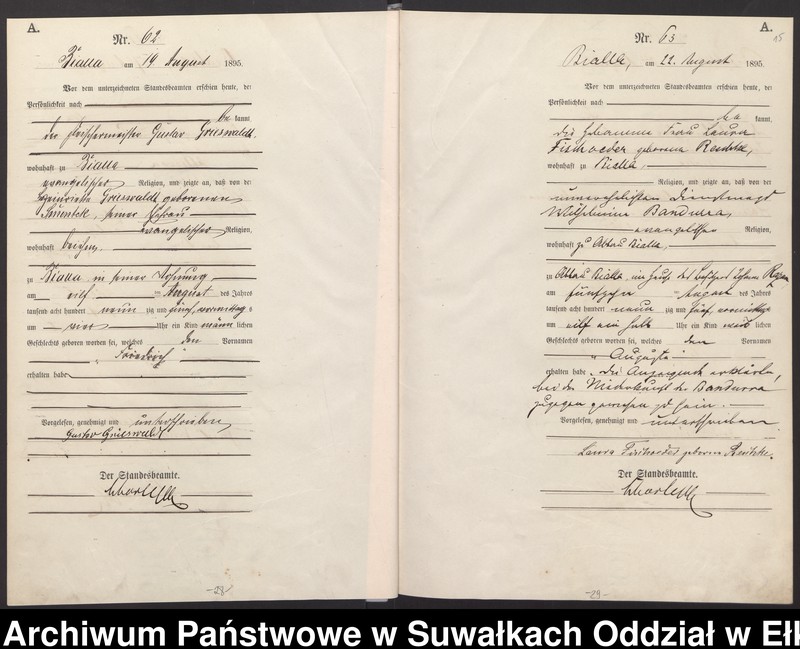 A.
Nr. 62
Bialla am 19 August 1895.
Vor dem unterzeichneten Standesbeamten erschien heute, der
Persönlichkeit nach
be kannt,
der Fleischermeister Gustav Grieswaldt,
wohnhaft zu Bialla
evangelischer Religion, und zeigte an, daß von der
Grieswaldt geborenen
seiner Ehefrau
evangelischer Religion,
wohnhaft bei ihm,
zu Bialla in seiner Wohnung
am elf ten August des Jahres
tausend acht hundert neun zig und fünf, vormittag s
um Uhr ein Kind männ lichen
Geschlechts geboren worden sei, welches den Vornamen
„Friedrich“
erhalten habe
Vorgelesen, genehmigt und unterschrieben
Gustav Grieswaldt
Der Standesbeamte.
-28-
A.
15
Nr. 63
Bialla, am 22. August 1895.
Vor dem unterzeichneten Standesbeamten erschien heute, der
Persönlichkeit nach
be kannt,
die Hebamme Frau Laura
Fischoeder geborene
wohnhaft zu Bialla,
Religion, und zeigte an, daß von der
unverehelichten Dienstmagd
Wilhelmine Bandurra,
evangelischer Religion,
wohnhaft zu Abbau Bialla,
zu Abbau Bialla, im Hause des
am fünfzehn ten August des Jahres
tausend acht hundert neun zig und fünf, vormittags
um elf ein halb Uhr ein Kind weib lichen
Geschlechts geboren worden sei, welches den Vornamen
„Auguste“
erhalten habe. Die Anzeigende erklärte,
bei der Niederkunft der Bandurra
zugegen gewesen zu sein.
Vorgelesen, genehmigt und unterschrieben
Laura Fischoeder geborene
Der Standesbeamte.
-29-
Archiwum Państwowe w Suwałkach Oddział w Ełk